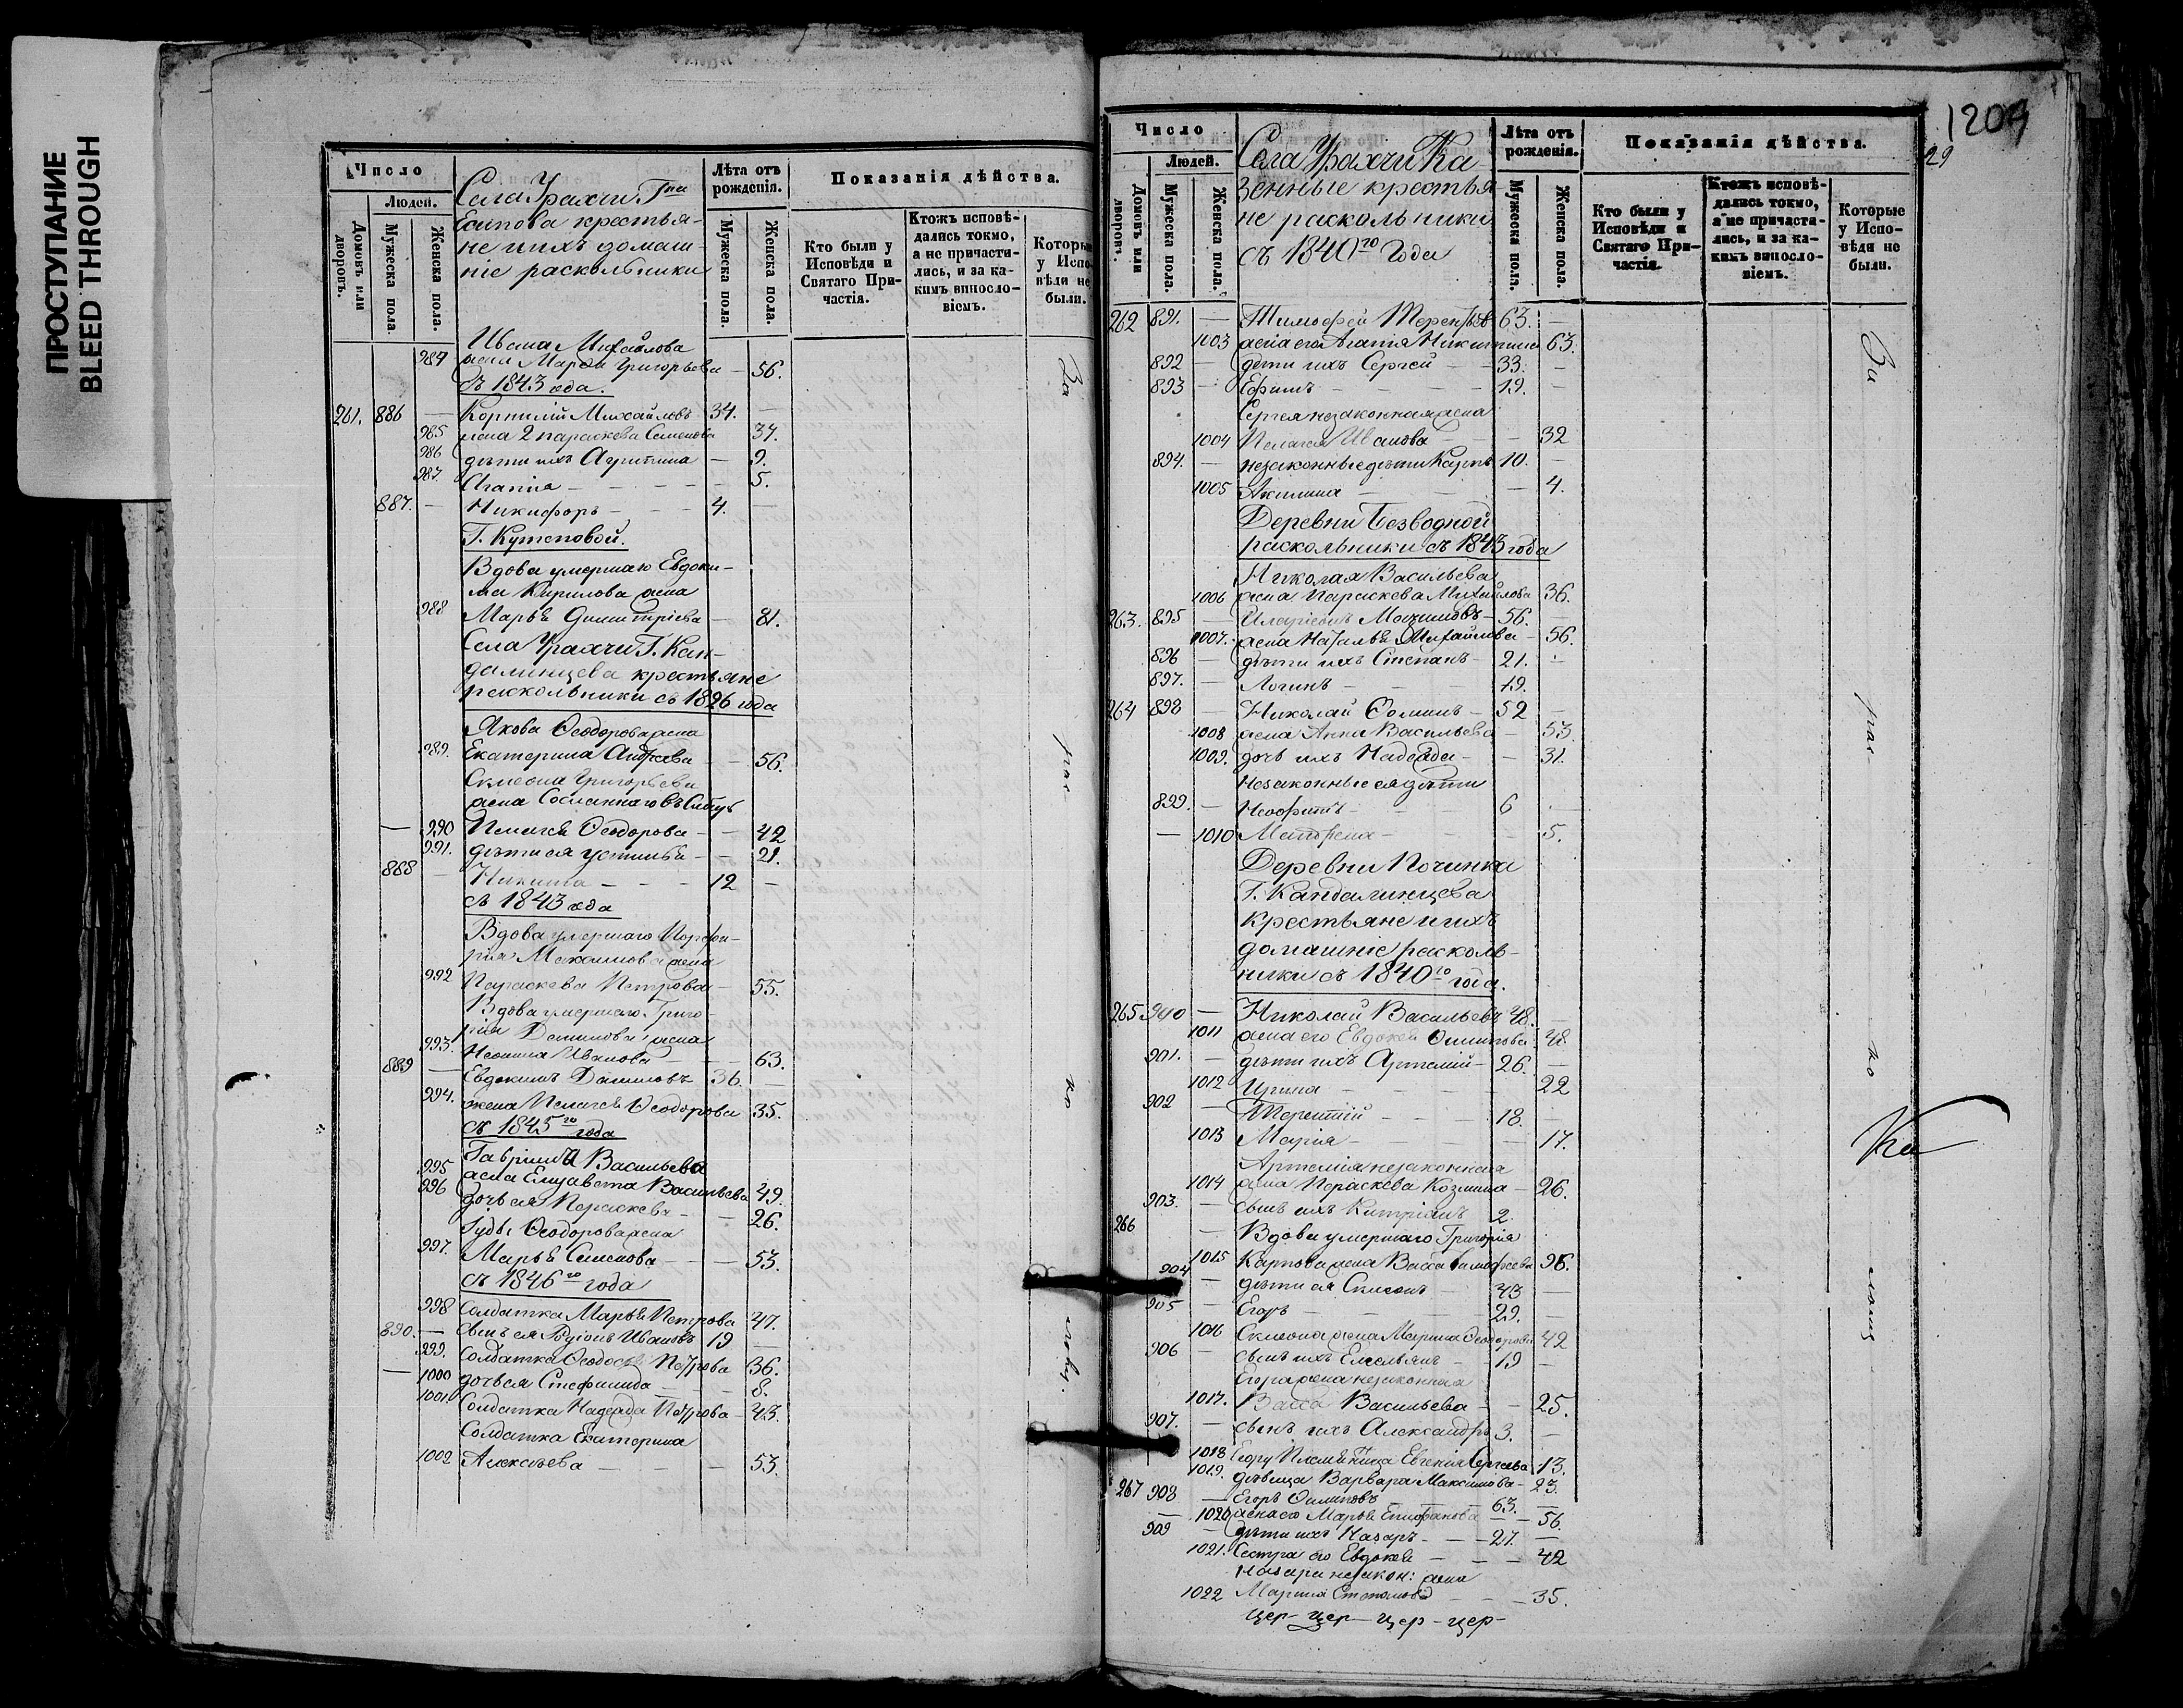 ПРОСТУПАНИЕ
BLEED THROUGH
Число
Людей.
Домовъ или дворовъ.
Мужеска пола.
Женска пола.
Села Урахчи Г-на
Есипова крестья-
не и ихъ домаш-
ніе раскольники
Лѣта отъ рожденія.
Мужеска пола.
Женска пола.
Показанія дѣйства.
Кто были у Исповѣди и Святаго Причастія.
Ктожъ исповѣдались токмо, а не причастились, и за какимъ винословіемъ.
Которые у Исповѣди не были.
Ивана Михайлова
984 жена Марѳа Григорьева – 56.
съ 1843 года.
261. 886 — Корнилій Михайловъ 34. —
985 жена 2 параскева Семенова 37.
986 дѣти ихъ Агрипина — 9.
987. Агапія – – – – 5.
887. — Никифоръ – – – 4. —
Г. Кутеповой.
Вдова умершаго Евдоки-
ма Кирилова жена
988 Марья Димитріева — 81.
Села Урахчи Г. Кан-
далинцева крестьяне
раскольники съ 1826 года
Якова Ѳеодорова жена
989. Екатерина Андреева – – 56.
Симеона Григорьева
жена Сосланнаго въ Сибирь
— 990 Пелагея Ѳеодорова – – 42
991. дѣти ея Устинья – – 21.
888 — Никита – – – 12 –
съ 1843 года
Вдова умершаго Порфи-
рія Максимова жена
992 Параскева Петрова – 55.
Вдова умершаго Григо-
рія Данилова жена
993. Неонила Иванова – – – 63.
889 — Евдокимъ Даниловъ 36. —
994. жена Пелагея Ѳеодорова 35.
съ 1845го года
Гавріила Васильева
995 жена Елизавета Васильева 49.
996 дочь ея Параскева – – 26.
Іуды Ѳеодорова жена
997. Марья Семенова – – – 53.
съ 1846го года
998 Солдатка Марья Петрова 47.
890. — сынъ ея Родіонъ Ивановъ 19 —
999. Солдатка Ѳеодосья Петрова 36.
— 1000 дочь ея Стефанида – – – 8.
1001 Солдатка Надежда Петрова – 43.
Солдатка Екатерина
1002 Алексѣева – – – – 53.
За
рас-
ко
ловц.
1209
29
Число
Людей.
Домовъ или дворовъ.
Мужеска пола.
Женска пола.
Села Урахчи Ка
зенные крестья
не раскольники
съ 1840го года
Лѣта отъ рожденія.
Мужеска пола.
Женска пола.
Показанія дѣйства.
Кто были у Исповѣди и Святаго Причастія.
Ктожъ исповѣдались токмо, а не причастились, и за какимъ винословіемъ.
Которые у Исповѣди не были.
262 891. — Тимофей Терентьев 63. —
1003 жена его Агапія Никитина 63.
892 — дѣти ихъ Сергей – – 33. –
893 — Ефимъ – – – 19. –
Сергея незаконная жена
1004 Пелагея Иванова – – – 32
894. — незаконные дѣти Карпъ 10. –
1005 Акилина – – – – 4.
Деревни Безводной
раскольники съ 1843 года
Николая Васильева
1006 жена Параскева Михайлова 36.
263. 895 — Иларіонъ Максимовъ – 56. –
1007. жена Наталья Михайлова – 56.
896 — дѣти ихъ Степанъ – 21. –
897. — Логинъ – – – 19.
264 898 — Николай Ѳоминъ – 52 –
1008 жена Анна Васильева – 53
1009. дочь ихъ Надежда – – 31.
незаконные ея дѣти
899. — Неофитъ – – – 6 –
— 1010 Матрена – – – – 5.
Деревни Починка
Г. Кандалинцева
крестьяне и ихъ
домашніе расколь-
ники съ 1840го года.
265 900 — Николай Васильевъ 48. –
1011 жена его Евдокея Филипова 48
901. — дѣти ихъ Артемій – 26. —
1012 Ирина – – – 22
902 — Терентій – – – 18. –
1013 Марія – – – – 17.
Артемія незаконная
1014 жена Параскева Козмина – 26.
903. — сынъ ихъ Кипріанъ 2.
266 — Вдова умершаго Григорія
1015 Карпова жена Васса Тимофеева 96.
904 — дѣти ея Симеонъ – 43 –
905 — Егоръ – – – 29. –
1016 Симеона жена Марина Ѳеодорова 42
906 — сынъ ихъ Емельянъ – – 19 –
Егора жена незаконная
1017. Васса Васильева – – 25.
907. — сынъ ихъ Александръ 3. –
1018 Егору Племянница Евгенія Сергеева 13.
1019. дѣвица Варвара Максимова – 23.
267 908 — Егоръ Филиповъ – – 63. —
— 1020 жена его Марья Епифанова – – 56.
909 — дѣти ихъ Назаръ – – 27. —
1021. Сестра его Евдокея – – – 42
Назара незакон: жена
1022 Марина Степанова – – – 35.
цер – цер – цер – цер –
За
рас
ко